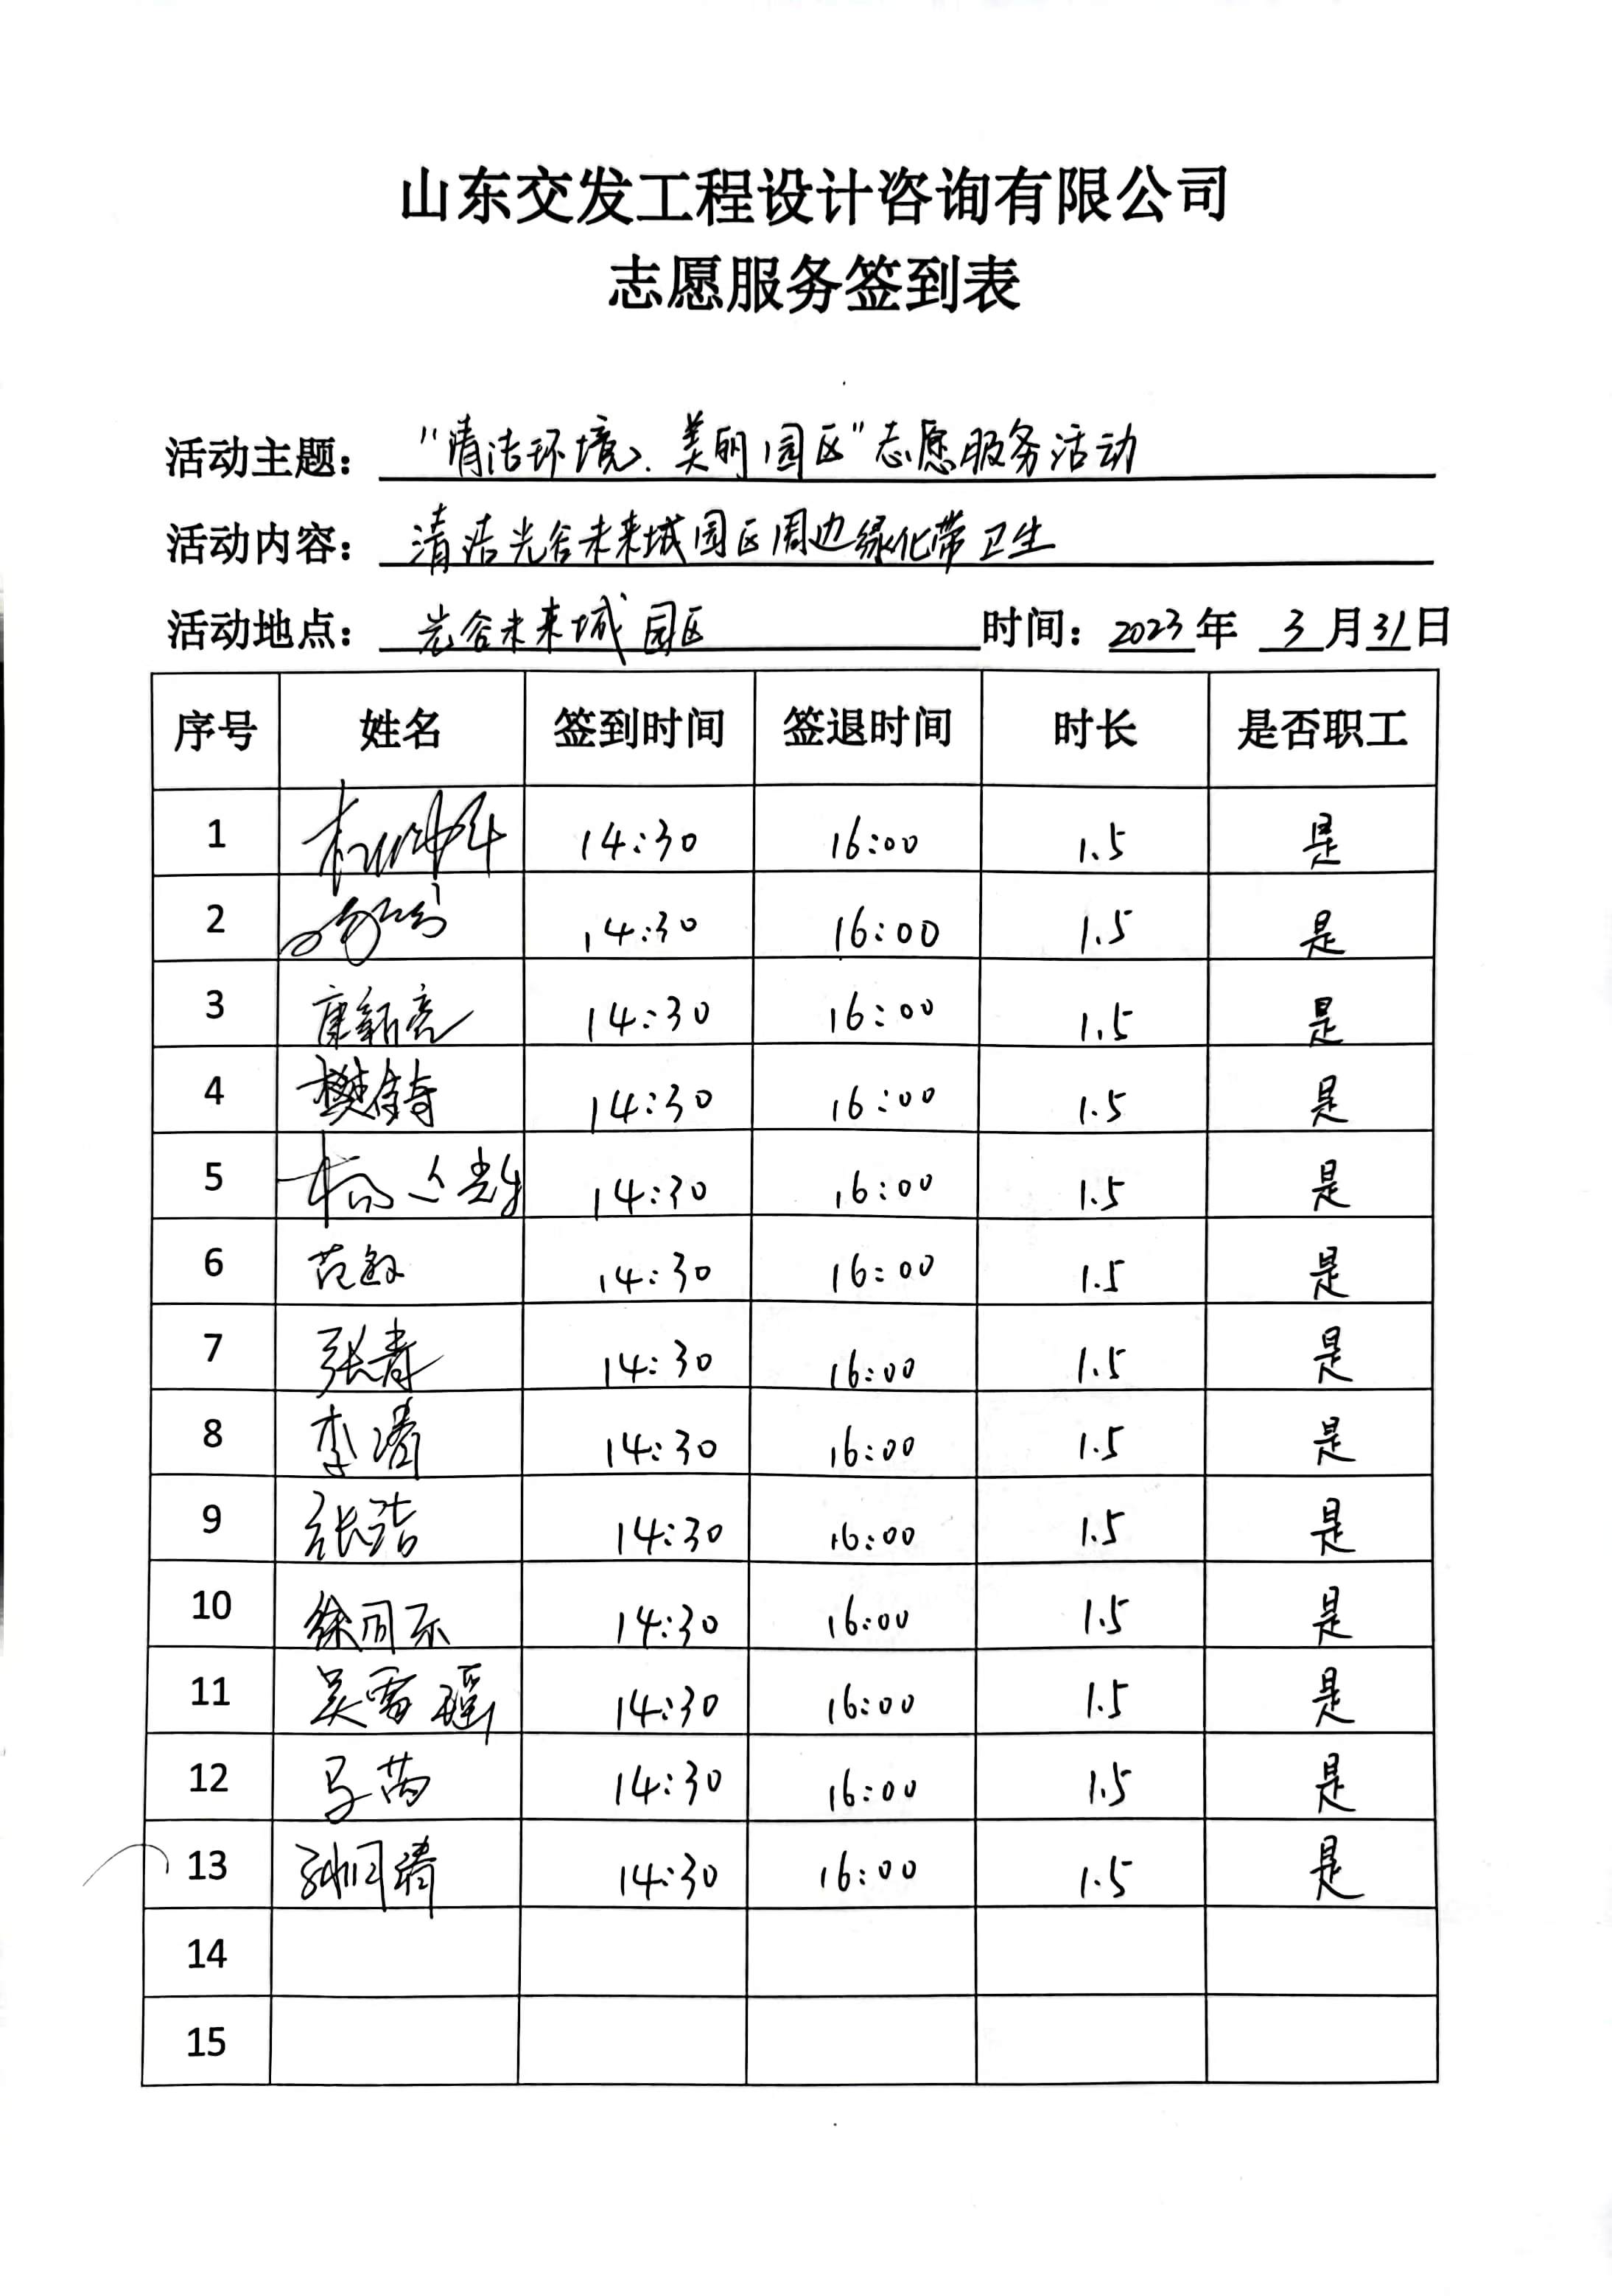 山东交发工程设计咨询有限公司
志愿服务签到表
活动主题：“清洁环境、美丽园区”志愿服务活动
活动内容：清洁光谷未来城园区周边绿化带卫生
活动地点：光谷未来城园区 时间：2023年 3月31日
序号 姓名 签到时间 签退时间 时长 是否职工
1 14:30 16:00 1.5 是
2 14:30 16:00 1.5 是
3 康新亮 14:30 16:00 1.5 是
4 樊锦奇 14:30 16:00 1.5 是
5 14:30 16:00 1.5 是
6 范敏 14:30 16:00 1.5 是
7 张青 14:30 16:00 1.5 是
8 李 14:30 16:00 1.5 是
9 张洁 14:30 16:00 1.5 是
10 徐同乐 14:30 16:00 1.5 是
11 吴雷瑶 14:30 16:00 1.5 是
12 马芮 14:30 16:00 1.5 是
13 14:30 16:00 1.5 是
14
15